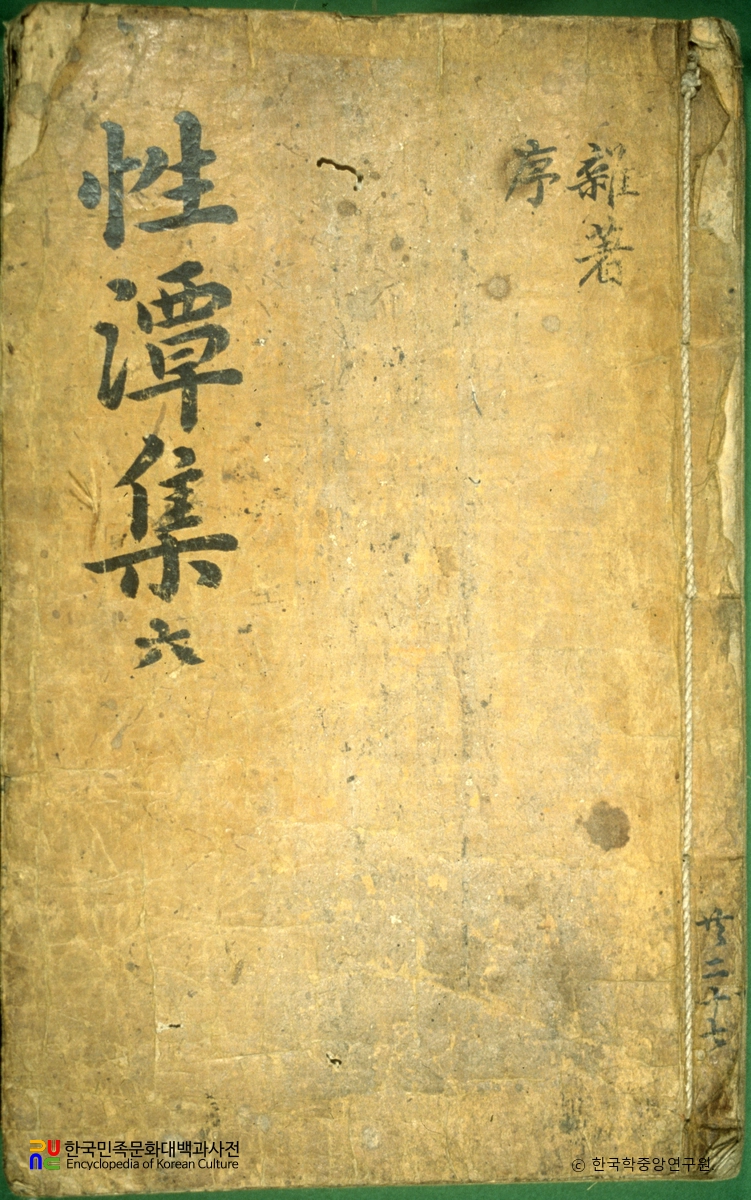 雜著
序
性潭集 六
한국민족문화대백과사전
Encyclopedia of Korean Culture
© 한국학중앙연구원